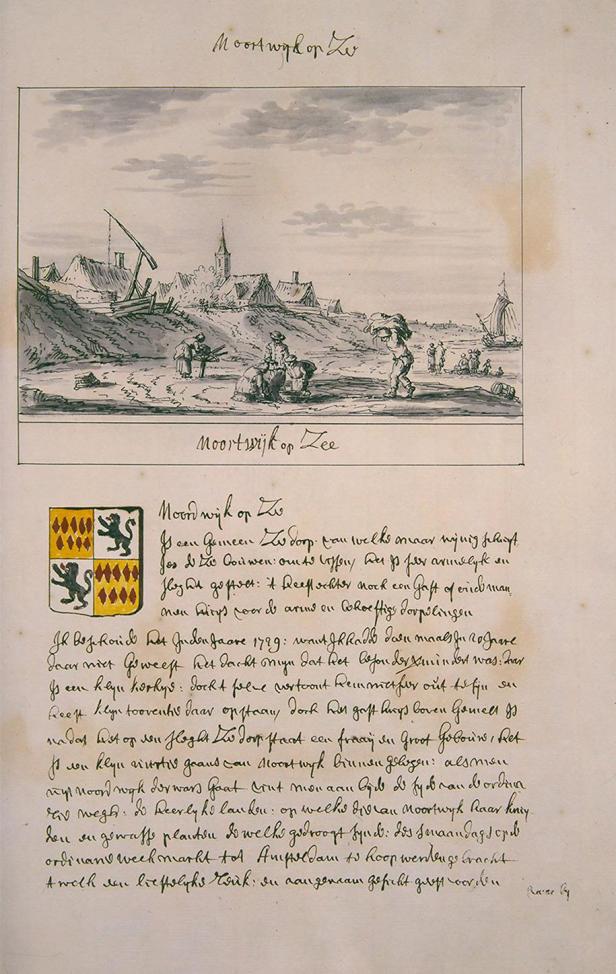 Noortwijk op Zee
Noortwijk op Zee
Noordwijk op Zee
Is een Gemeen Zee dorp: van welke maar wijnig
de Zee bouwen: om te het is seer armelijk en
slegt gestelt: 't heeft echter noch een gast of oude man
nen huijs voor de arme en behoeftige dorpelingen
Ik beschoude het In den Jaare 1739: want Ik hadde doen maals In 20 Jaare
daar niet Geweest het dacht mijn dat het besonder vermindert was: daar
Is een klijn kerkije: docht selve vertoont hem niet seer out te sijn en
heeft klijn toorentie daar op staan, doch het gast huijs boven Gemelt Is
na dat het op een slegt Zee dorp staat een fraaij en Groot Gebouw: het
Is een klijn uurtie gaans van Noortwijk binnen gelegen: als men
Noordwijk derwars Gaat vint men aan bijde de sijde van de ordina
rie wegh: de heerlijke landen: op welke die van Noortwijk haar kruij
den en gewasse planten de welke gedroogt sijnde: des smaandags op de
ordinarie weekmarkt tot Amsteldam te koop werden gebracht
't welk een lieffelijke reuk: en aangenaam gesicht geeft voor den